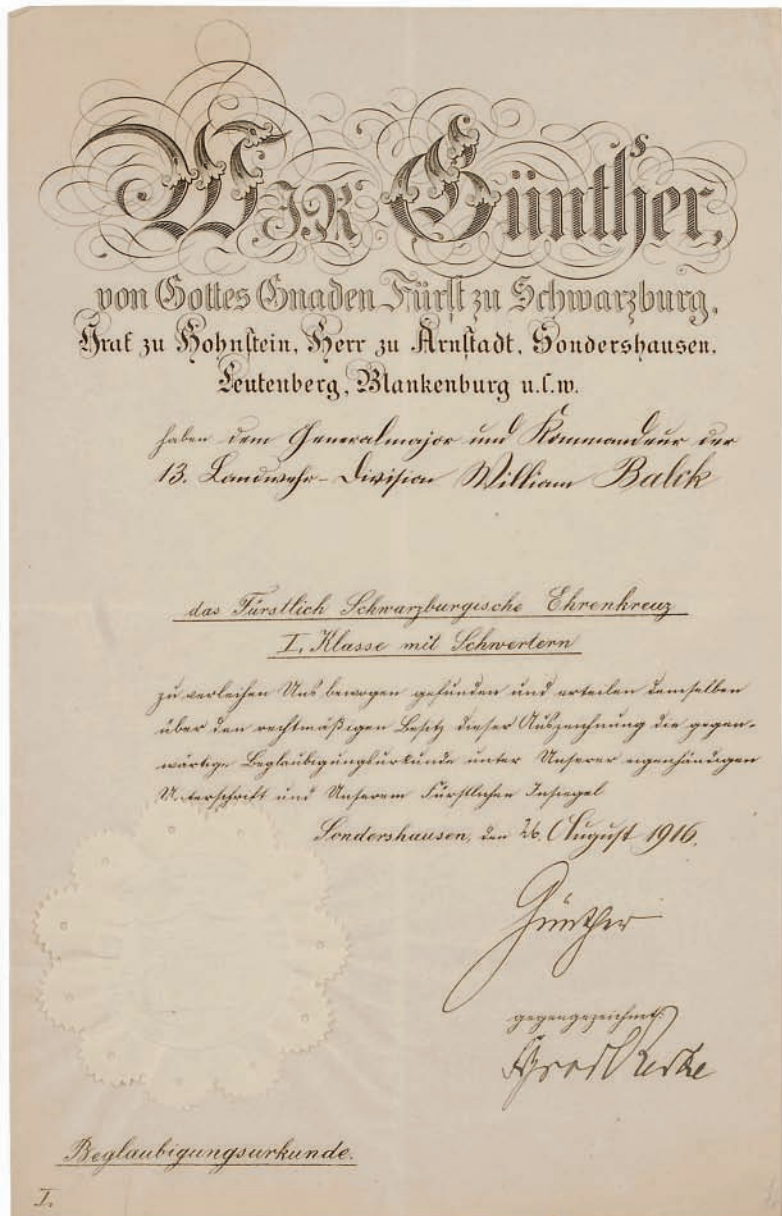 WIR Günther,
von Gottes Gnaden Fürst zu Schwarzburg,
Graf zu Hohnstein, Herr zu Arnstadt, Sondershausen,
Leutenberg, Blankenburg u.s.w.
haben dem Generalmajor und Kommandeur der
13. Landwehr-Division William Balck
das Fürstlich Schwarzburgische Ehrenkreuz
I. Klasse mit Schwertern
zu verleihen Uns bewogen gefunden und erteilen demselben
über den rechtmäßigen Besitz dieser Auszeichnung die gegen-
wärtige Beglaubigungsurkunde unter Unserer eigenhändigen
Unterschrift und Unserem Fürstlichen Insiegel
Sondershausen, den 26. August 1916.
Günther
gegengezeichnet:
Beglaubigungsurkunde.
I.